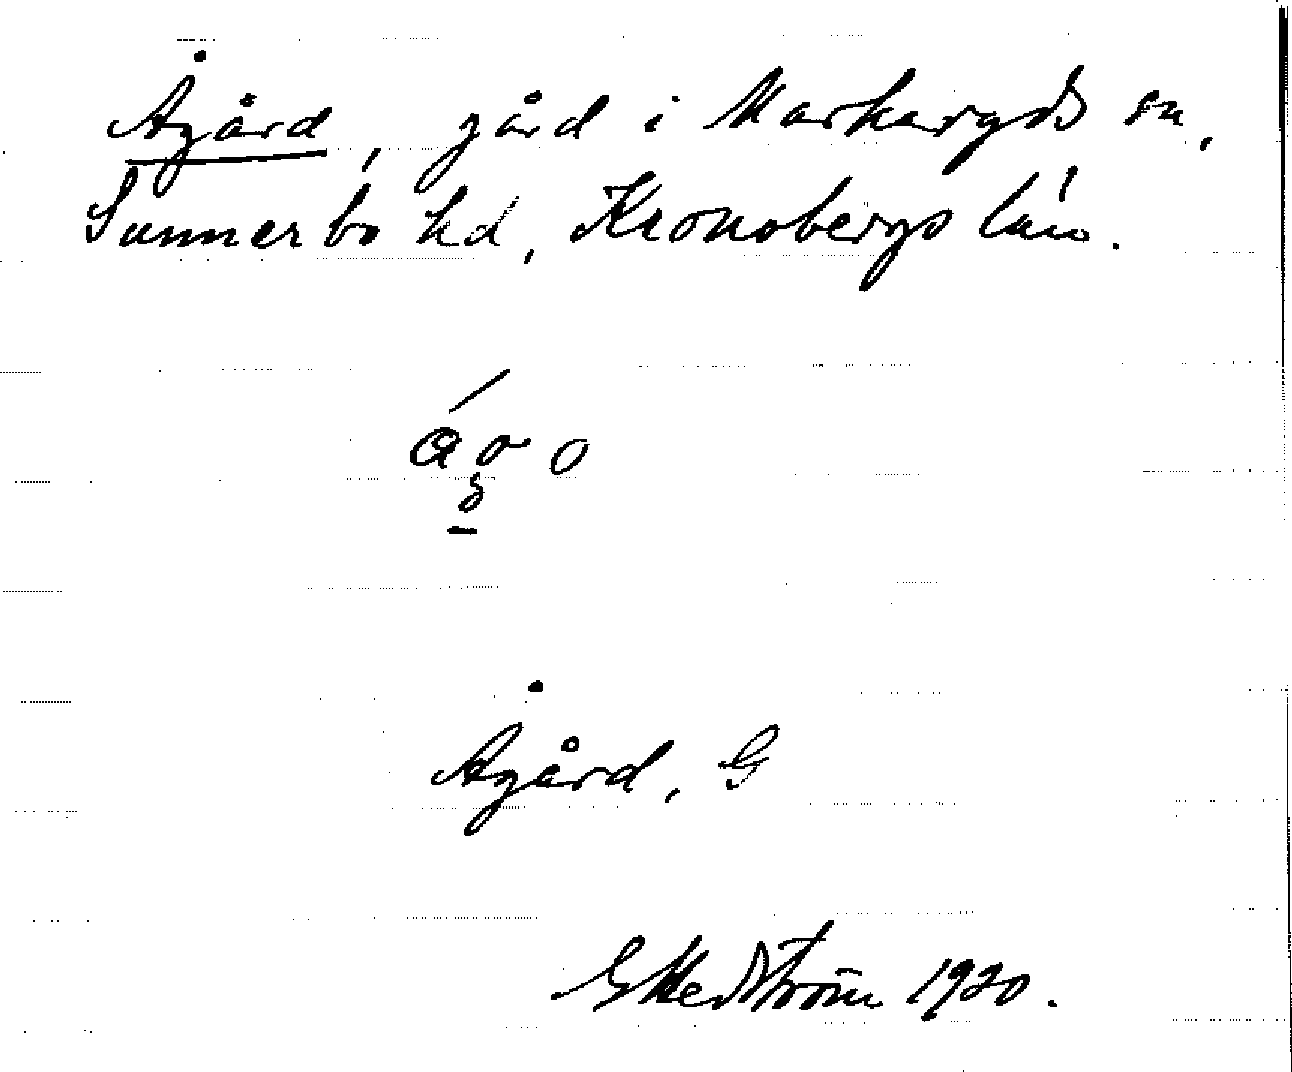 Ågård, gård i Markaryds sn,
Sunnerbo hd, Kronobergs län.
Ågård, G
G Hedström 1920.